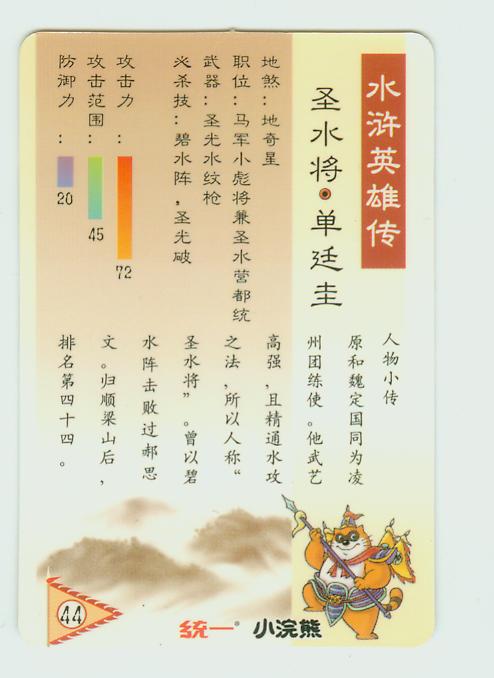 水浒英雄传
圣水将·单廷圭
地煞：地奇星
职位：马军小彪将兼圣水营都统
武器：圣光水纹枪
必杀技：碧水阵，圣光破
攻击力：
72
攻击范围：
45
防御力：
20
人物小传
原和魏定国同为凌
州团练使。他武艺
高强，且精通水攻
之法，所以人称“
圣水将”。曾以碧
水阵击败过郝思
文。归顺梁山后，
排名第四十四。
44
统一® 小浣熊